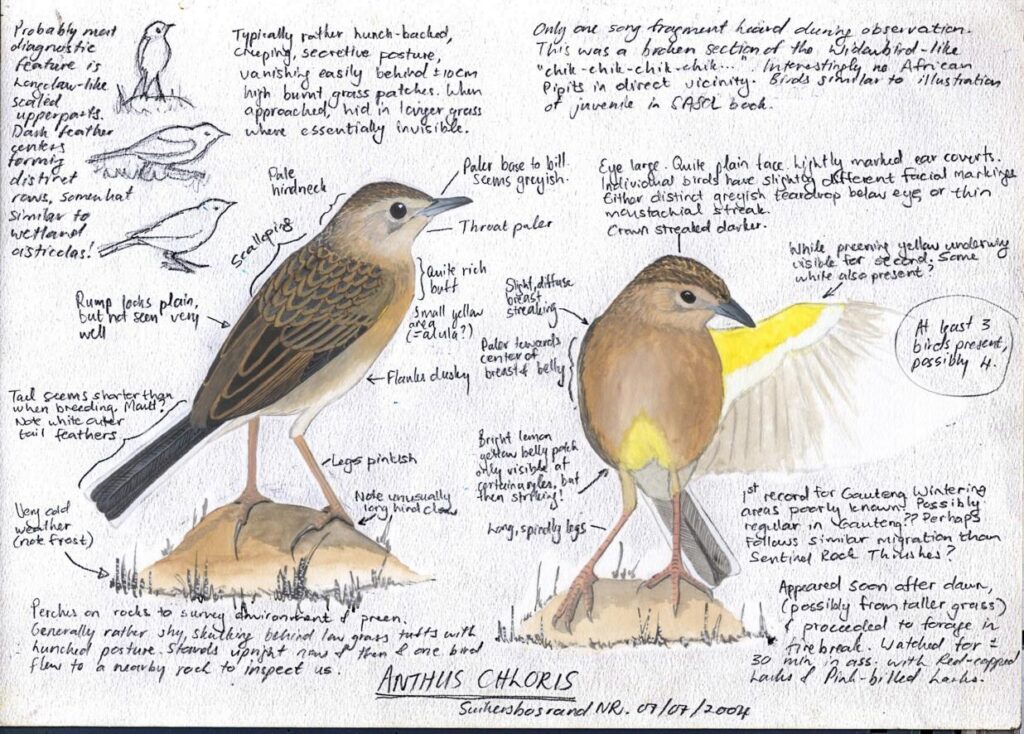 Probably most
diagnostic
feature is
Longclaw-like
scaled
upperparts.
Dark feather
centers
forming
distinct
rows, somewhat
similar to
wetland
cisticolas!
Typically rather hunch-backed,
creeping, secretive posture,
vanishing easily behind ±10cm
high burnt grass patches. When
approached, hid in longer grass
where essentially invisible.
Only one song fragment heard during observation.
This was a broken section of the Widowbird-like
"chik-chik-chik-chik...". Interestingly no African
Pipits in direct vicinity. Birds similar to illustration
of juvenile in SASOL book.
Pale
hindneck
Paler base to bill
seems greyish.
Throat paler
Scalloping
Quite rich
buff
Small yellow
area
(=alula?)
Rump looks plain,
but not seen very
well
Flanks dusky
Tail seems shorter than
when breeding. Moult?
Note white outer
tail feathers
Legs pinkish
Note unusually
long hind claw
Very cold
weather
(not frost)
Eye large. Quite plain face. Lightly marked ear coverts.
Individual birds have slightly different facial markings
Either distinct greyish teardrop below eye, or thin
moustachial streak.
Crown streaked darker.
While preening yellow underwing
visible for second. Some
white also present?
Slight, diffuse
breast
streaking
Paler towards
center of
breast & belly
At least 3
birds present,
possibly 4.
Bright lemon
yellow belly patch
only visible at
certain angles, but
then striking!
Long, spindly legs
1st record for Gauteng Wintering
areas poorly known. Possibly
regular in Gauteng?? Perhaps
follows similar migration than
Sentinel Rock Thrushes?
Appeared soon after dawn,
(possibly from taller grass)
& proceeded to forage in
firebreak. Watched for ±
30 min in ass. with Red-capped
Larks & Pink-billed Larks.
Perches on rocks to survey environment & preen.
Generally rather shy, skulking behind low grass tufts with
hunched posture. Stands upright now & then & one bird
flew to a nearby rock to inspect us.
ANTHUS CHLORIS
Suikerbosrand NR. 07/07/2004